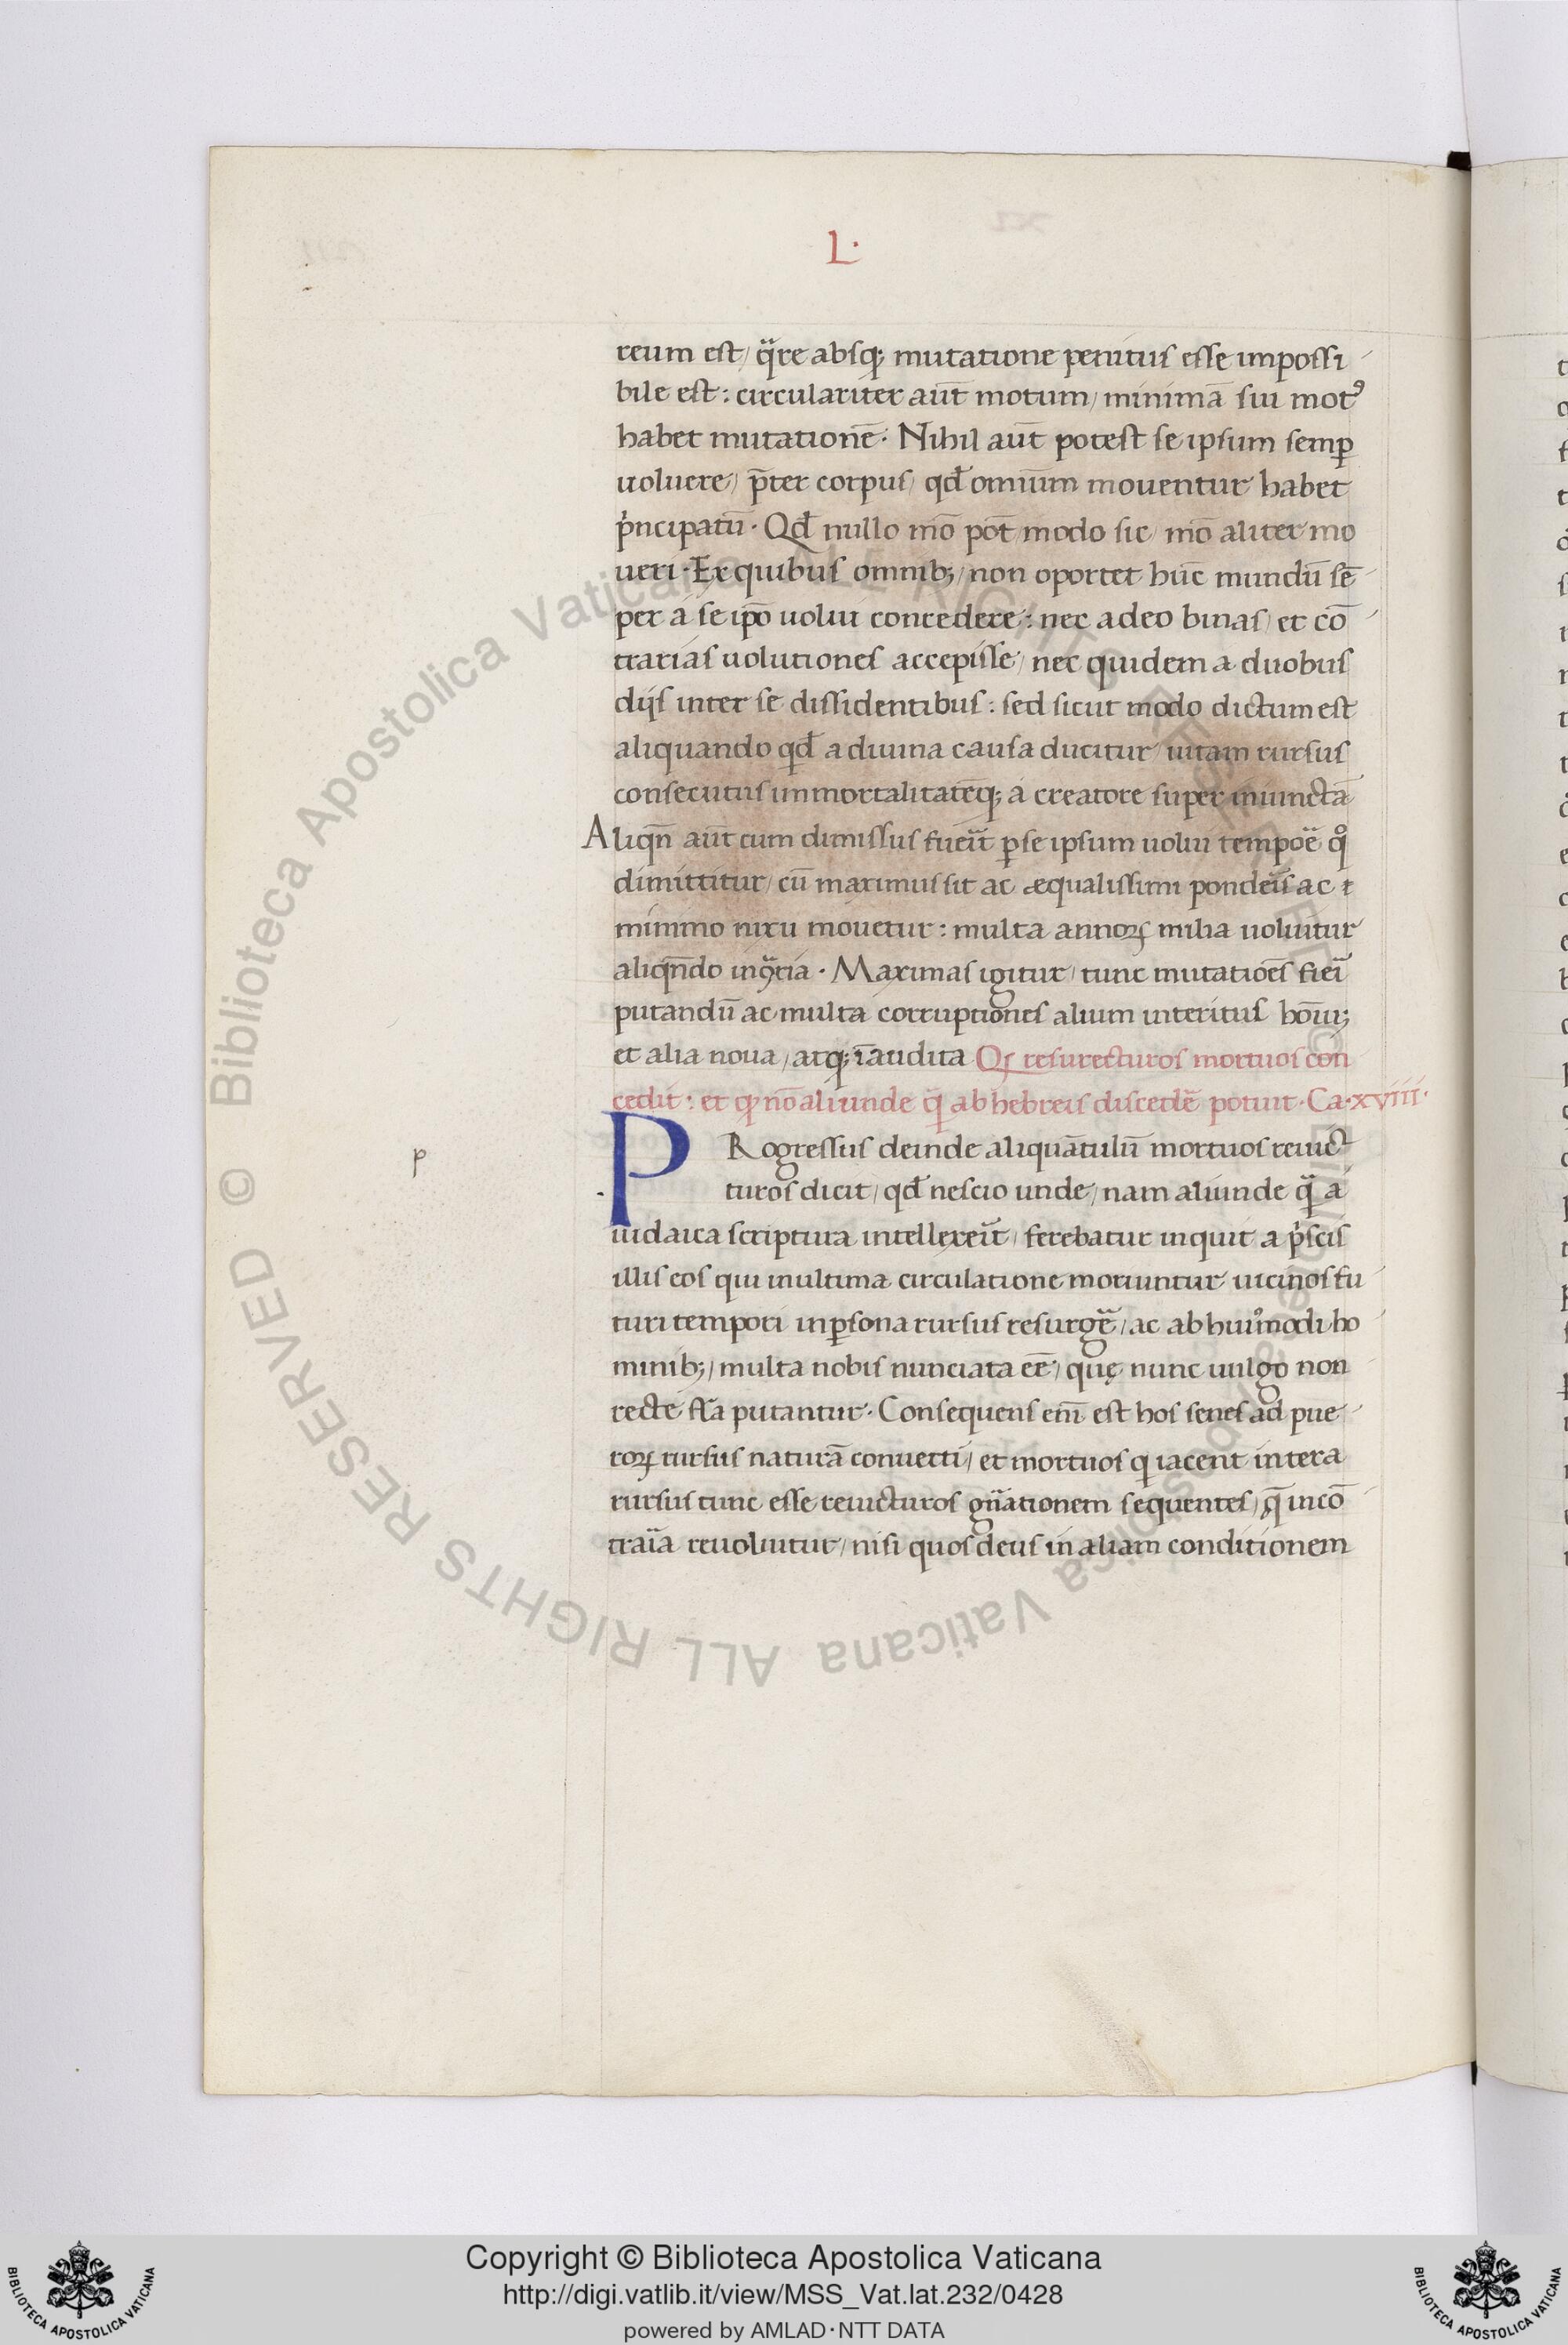 L·
reum est, q̈re absq; mutatione penitus esse impossi
bile est: circulariter aut̄ motum, minimā sui motꝰ
habet mutationē. Nihil aut̄ potest se ipsum semꝑ
uoluere, p̄ter corpus, qd̄ omīum mouentur habet
pͥncipatū. Qd̄ nullo mō pōt modo sic, mō aliter mo
ueri. Ex quibus omnib;, non oportet hūc mundū sē
per a se ip̄o uolui concedere: nec adeo binas, et cō
trarias uolutiones accepisse, nec quidem a duobus
dijs inter se dissidentibus: sed sicut modo dictum est
aliquando qd̄ a diuina causa ducitur, uitam rursus
consecutus immortalitatēq; a creatore super iniunctā
Aliqn̄ aut̄ cum dimissus fuerit̄ ꝑ se ipsum uolui tempoē qͦ
dimittitur, cū maximus sit ac æqualissimi pondeīs ac ī
minimo nixu mouetur: multa annoꝝ milia uoluitur
aliqn̄do in ꝯ̈tia. Maximas igitur, tunc mutatiōes fieī
putandū ac multa corruptiones alium interitus hōiu;
et alia noua, atq; īaudita Qꝫ resurecturos mortuos con
cedit: et qꝫ nō aliunde q̄ ab hebreis discedē potuit. Ca. xviiii.
PRogressus deinde aliquātulū mortuos reuict
turos dicit, qd̄ nescio unde, nam aliunde q̄ a
p
iudaica scriptura intellexeīt, ferebatur inquit a pͥscis
illis eos qui in ultima circulatione moriuntur uicinos fu
turi tempori in ꝑsona rursus resurgē, ac ab huiͦmodi ho
minib;, multa nobis nunciata eē, quę nunc uulgo non
recte fc̄a putantur. Consequens enī est hos senes ad pue
roꝝ rursus naturā conuerti, et mortuos qi iacent in tera
rursus tunc esse reuicturos gn̄ationem sequentes, q̄ in cō
traīa reuoluitur, nisi quos deus in aliam conditionem
© Biblioteca Apostolica Vaticana ALL RIGHTS RESERVED
© Biblioteca Apostolica Vaticana ALL RIGHTS RESERVED
Copyright © Biblioteca Apostolica Vaticana
http://digi.vatlib.it/view/MSS_Vat.lat.232/0428
powered by AMLAD·NTT DATA
BIBLIOTECA APOSTOLICA VATICANA
BIBLIOTECA APOSTOLICA VATICANA